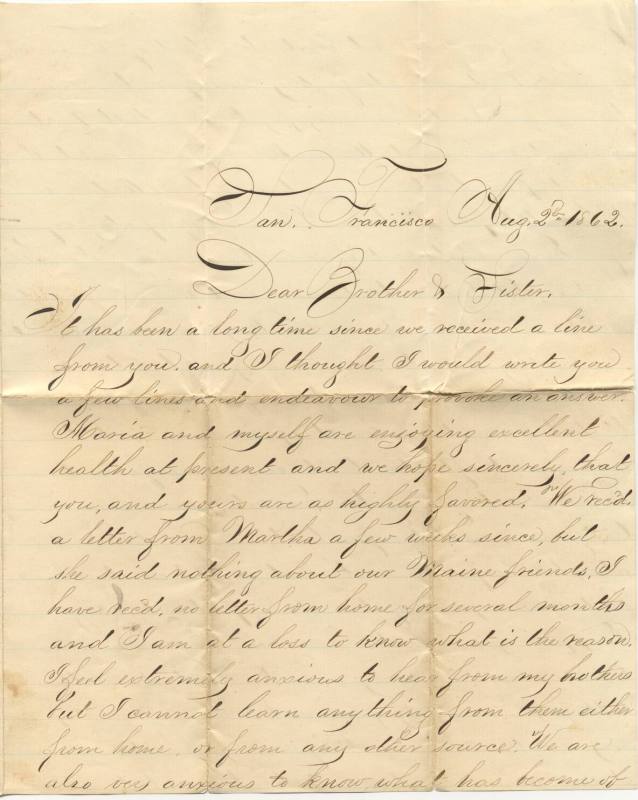 San. Francisco Aug. 2nd 1862.
Dear Brother & Sister.
It has been a long time since we received a line
from you. and I thought I would write you
a few lines and endeavour to provoke an answer.
Maria and myself are enjoying excellent
health at present and we hope sincerely, that
you, and yours are as highly favored. We rec'd.
a letter from Martha a few weeks since, but
she said nothing about our Maine friends, I
have rec'd. no letter from home for several months
and I am at a loss to know what is the reason.
I feel extremely anxious to hear from my brothers
but I cannot learn anything from them either
from home. or from any other source. We are
also very anxious to know what has become of